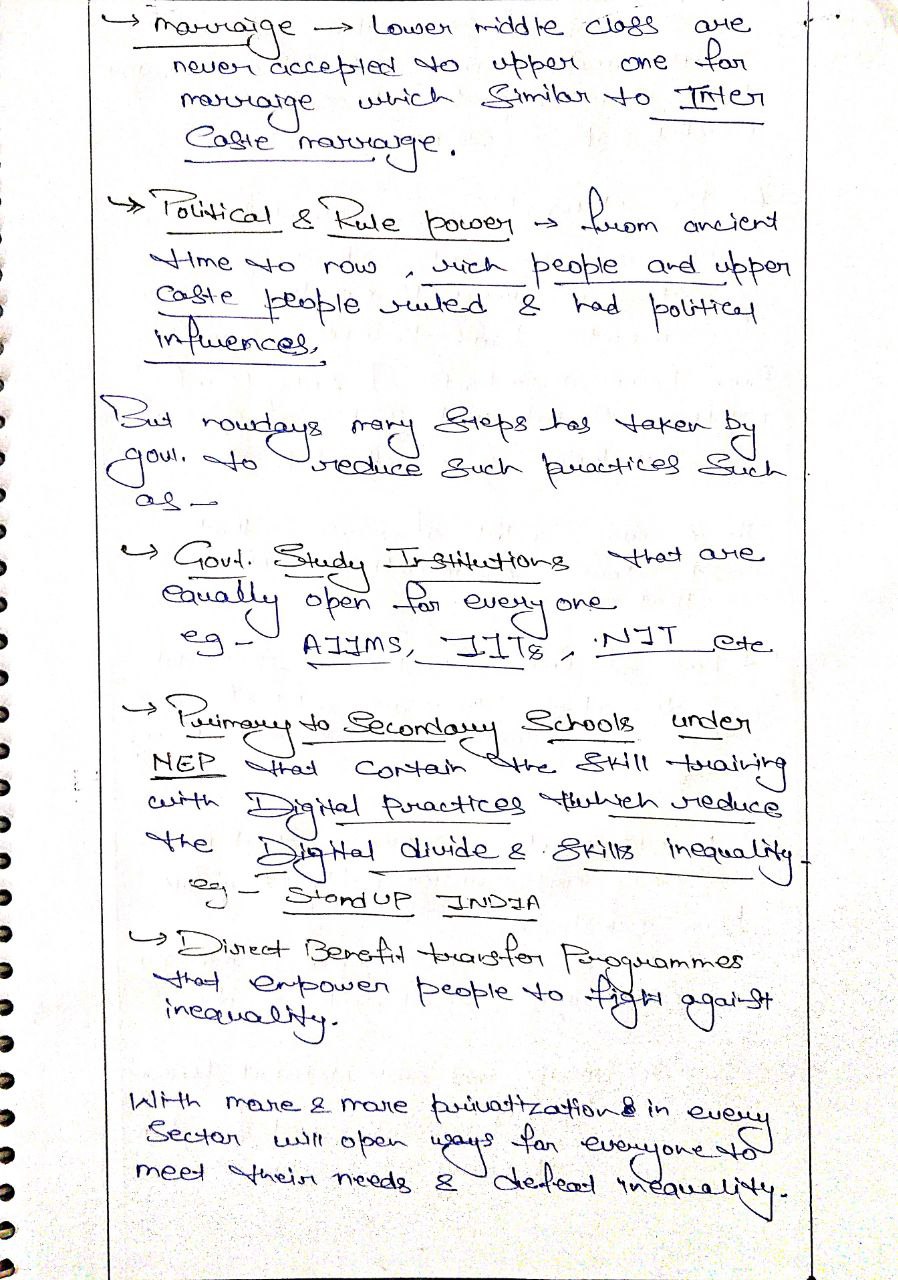 → marraige → Lower middle class are
never accepted to upper one for
marraige which similar to Inter
Caste marraige.
→ Political & Rule power → from ancient
time to now, rich people and upper
caste people ruled & had political
influences,
But nowdays many steps has taken by
govt. to reduce such practices such
as –
→ Govt. Study Institutions that are
equally open for everyone
eg – AIIMS, IITs, NIT etc
→ Primary to Secondary Schools under
NEP that contain the skill training
with Digital practices which reduce
the Digital divide & skills inequality
eg – StandUP INDIA
→ Direct Benefit transfer Programmes
that empower people to fight against
inequality.
With more & more privatization in every
Sector will open ways for everyone to
meet their needs & defeat inequality.